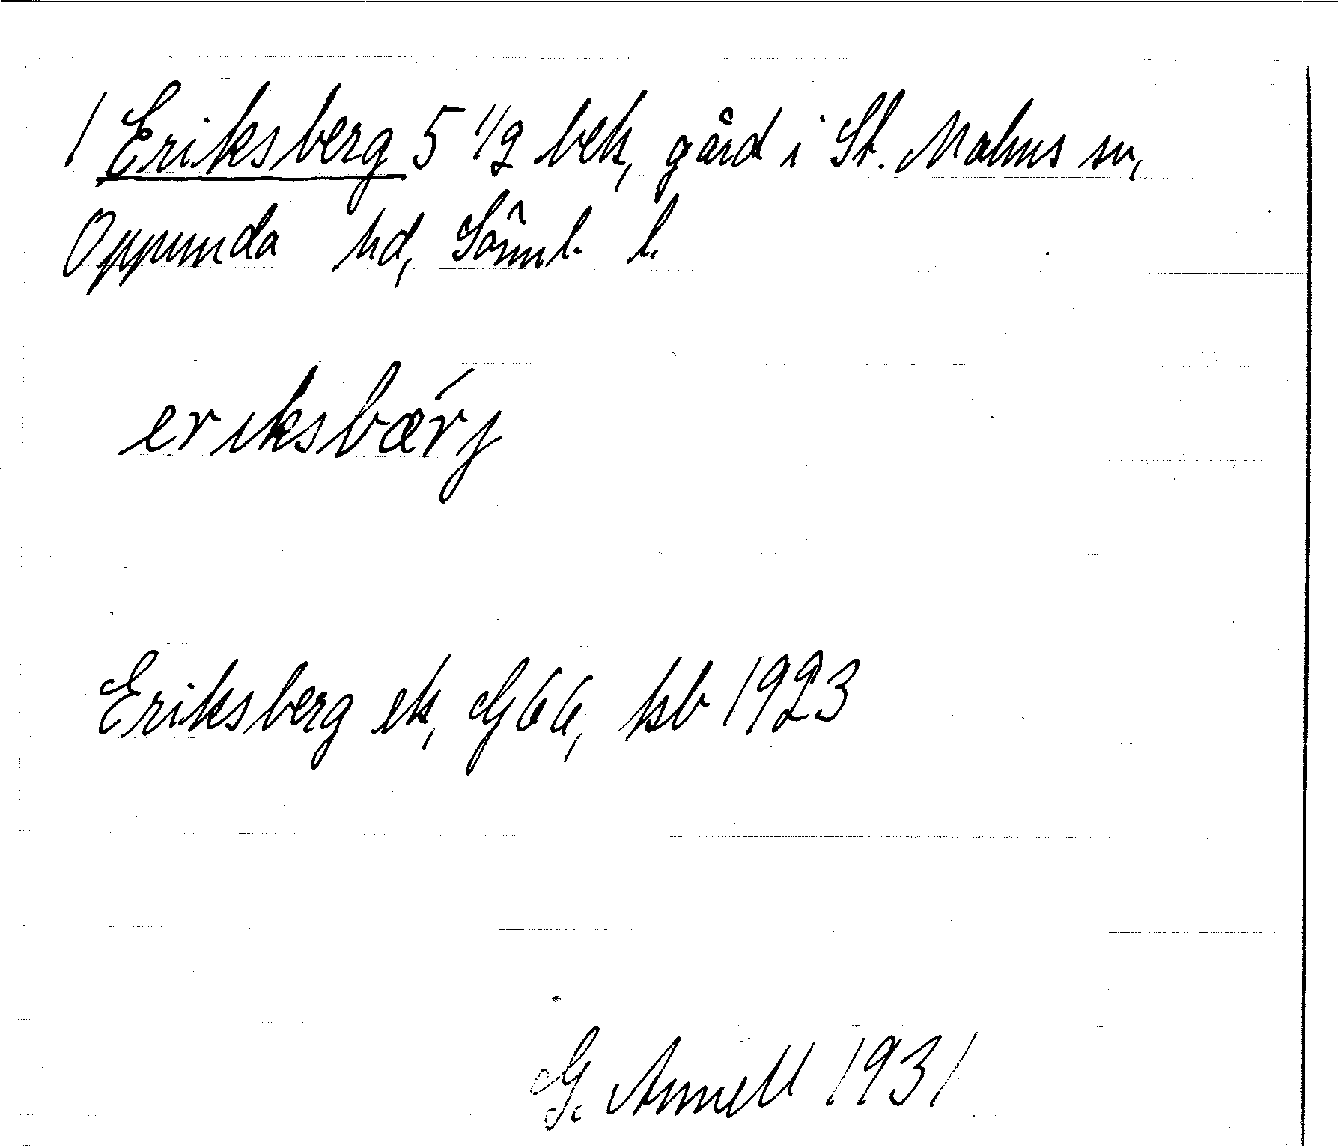 1 Eriksberg 5 1/2 bek, gård i St. Malms sn,
Oppunda hd, Söml. l.
eriksbærj
Eriksberg ek, G66, kb 1923
G. Annell 1931